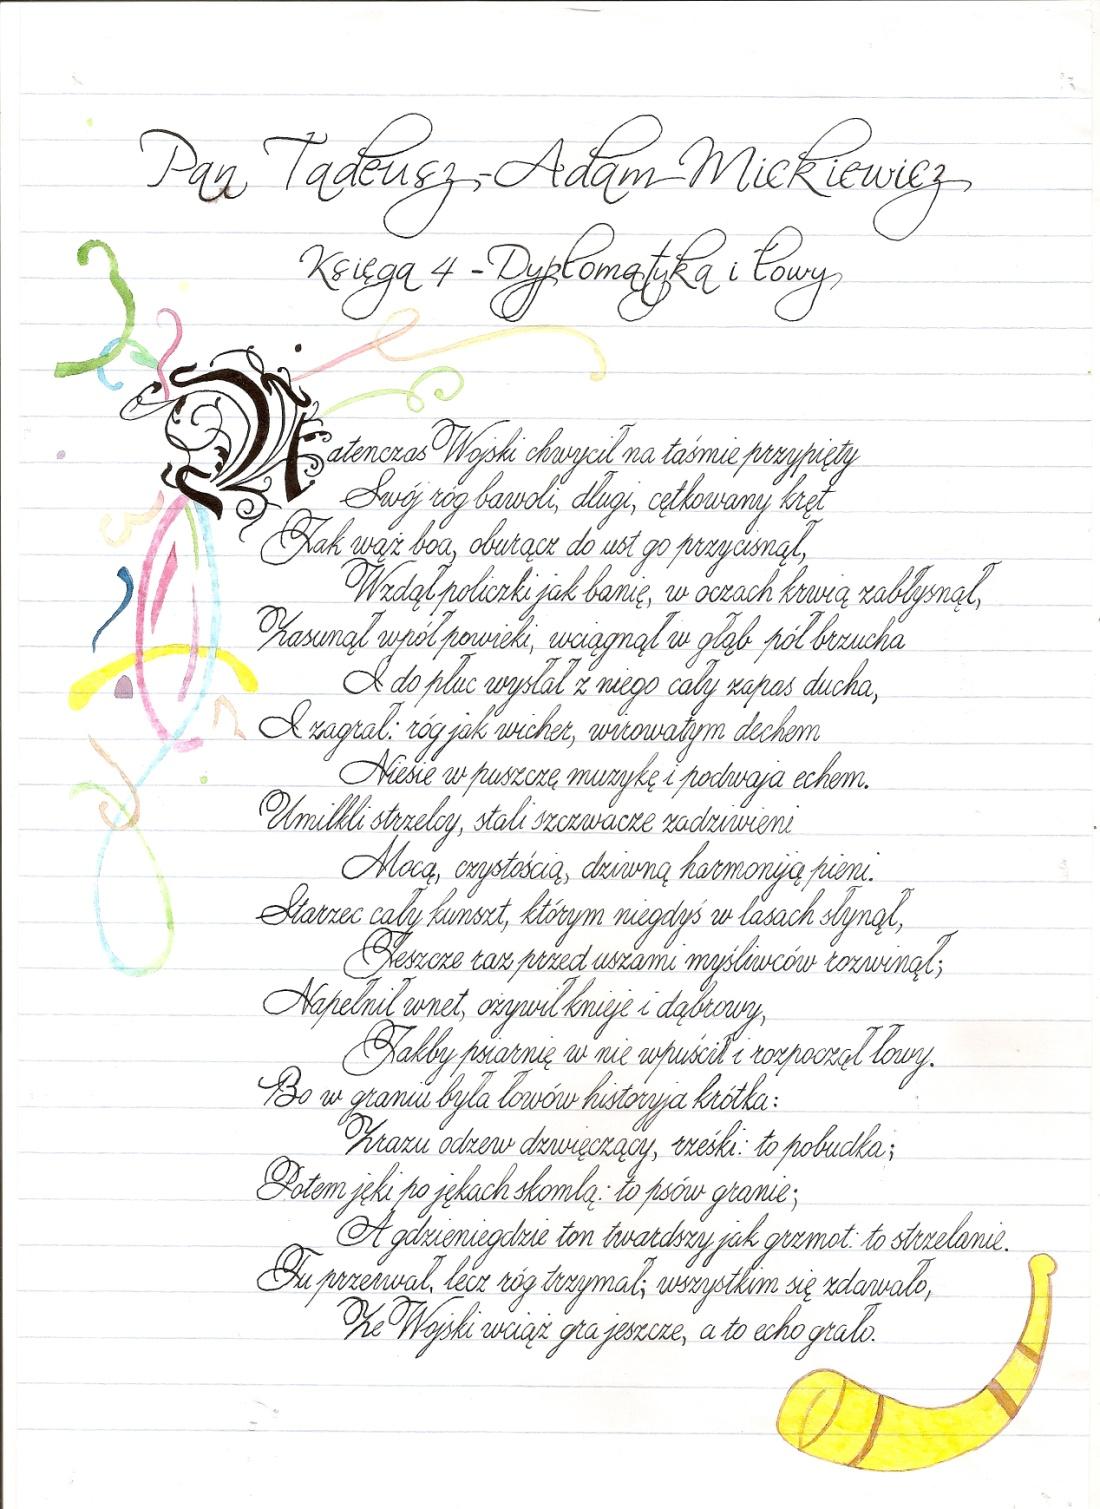 Pan Tadeusz - Adam Mickiewicz
Księga 4 - Dyplomatyka i łowy
Natenczas Wojski chwycił na taśmie przypięty
Swój róg bawoli, długi, cętkowany kręt
Jak wąż boa, oburącz do ust go przycisnął,
Wzdął policzki jak banię, w oczach krwią zabłysnął,
Zasunął wpół powieki, wciągnął w głąb pół brzucha
I do płuc wysłał z niego cały zapas ducha,
I zagrał: róg jak wicher, wirowatym dechem
Niesie w puszczę muzykę i podwaja echem.
Umilkli strzelcy, stali szczwacze zadziwieni
Mocą, czystością, dziwną harmoniją pieni.
Starzec cały kunszt, którym niegdyś w lasach słynął,
Jeszcze raz przed uszami myśliwców rozwinął;
Napełnił wnet, ożywił knieje i dąbrowy,
Jakby psiarnię w nie wpuścił i rozpoczął łowy.
Bo w graniu była łowów historyja krótka:
Zrazu odzew dzwięczący, rześki: to pobudka;
Potem jęki po jękach skomlą: to psów granie;
A gdzieniegdzie ton twardszy jak grzmot: to strzelanie.
Tu przerwał, lecz róg trzymał; wszystkim się zdawało,
Że Wojski wciąż gra jeszcze, a to echo grało.